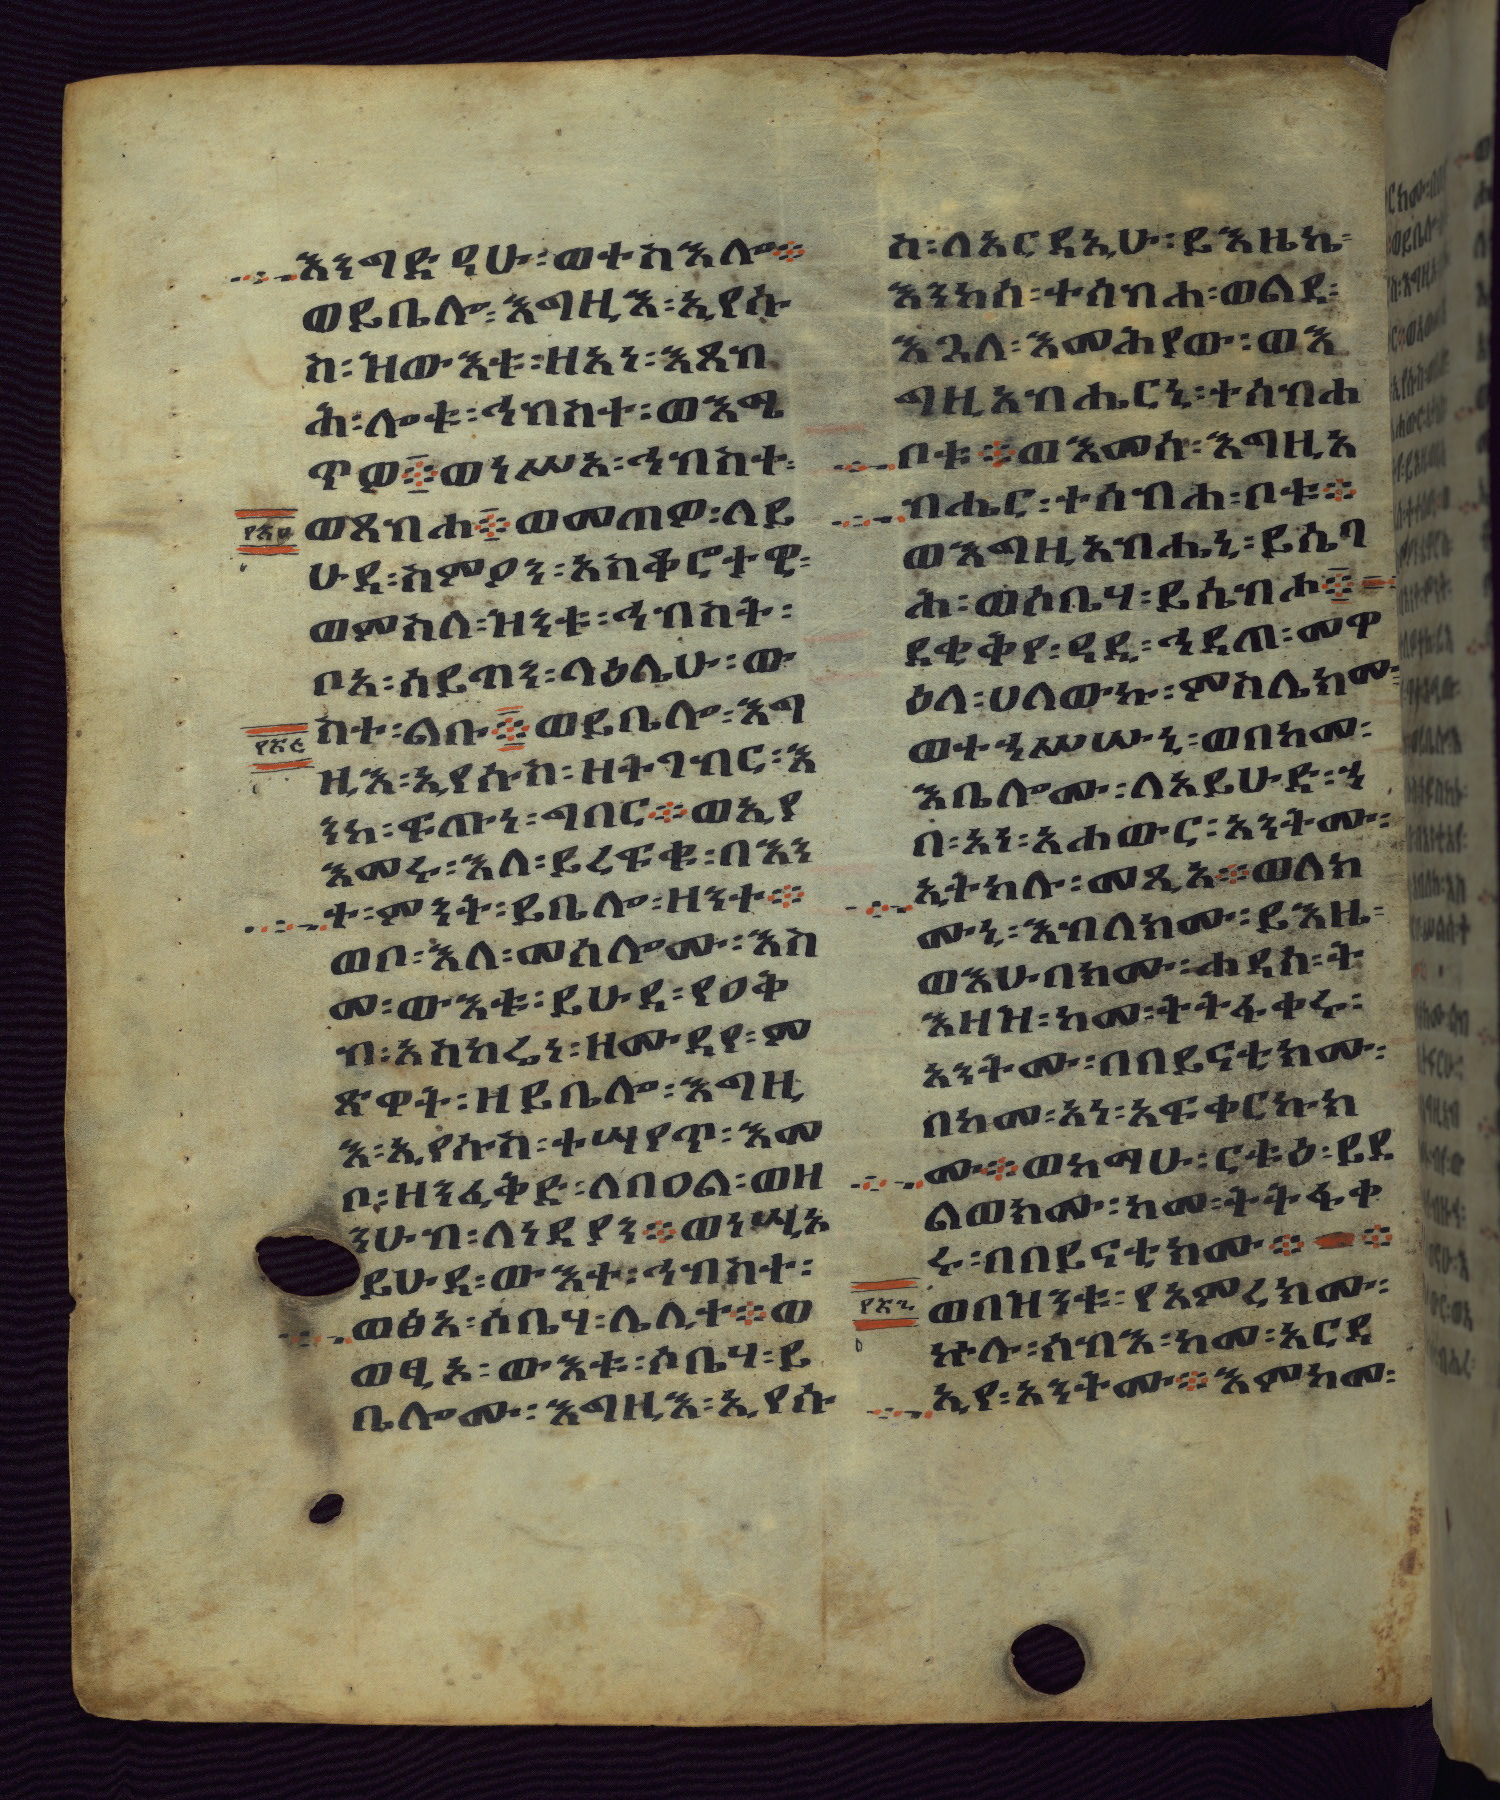 እንግድዳሁ፡ወተስእሎ፨
ወይቤሎ፡እግዚእ፡ኢየሱ
ስ፡ዝውእቱ፡ዘአነ፡እጸብ
ሕ፡ሎቱ፡ኅብስተ፡ወእሜ
ጥዎ፨ወነሥአ፡ኅብስተ፡
ወጸብሐ፨ወመጠዎ፡ለይ
ሁዳ፡ስምዖን፡አስቆሮታዊ፡
ወምስለ፡ዝንቱ፡ኅብስት፡
ቦአ፡ሰይጣን፡ላዕሌሁ፡ው
ስተ፡ልቡ፨ወይቤሎ፡እግ
ዚእ፡ኢየሱስ፡ዘትገብር፡እ
ንከ፡ፍጡነ፡ግበር፨ወኢየ
እመሩ፡እለ፡ይረፍቁ፡በእን
ተ፡ምንት፡ይቤሎ፡ዘንተ፨
ወቦ፡እለ፡መሰሎሙ፡እስ
መ፡ውእቱ፡ይሁዳ፡የዐቅ
ብ፡አስከሬነ፡ዘሙዳየ፡ም
ጽዋት፡ዘይቤሎ፡እግዚ
እ፡ኢየሱስ፡ተሣየጥ፡እመ
ቦ፡ዘንፈቅድ፡ለበዐል፡ወዘ
ንሁብ፡ለነዳያን፨ወነሢአ
ይሁዳ፡ውእተ፡ኅብስተ፡
ወፅአ፡ሶቤሃ፡ሌሊተ፨ወ
ወፂኦ፡ውእቱ፡ሶቤሃ፡ይ
ቤሎሙ፡እግዚእ፡ኢየሱ
ስ፡ለአርዳኢሁ፡ይእዜኬ፡
እንከሰ፡ተሰብሐ፡ወልደ፡
እጓለ፡እመሕያው፡ወእ
ግዚአብሔርኒ፡ተሰብሐ
ቦቱ፨ወእመሰ፡እግዚአ
ብሔር፡ተሰብሐ፡ቦቱ፨
ወእግዚአብሔኒ፡ይሴባ
ሕ፡ወሶቤሃ፡ይሴብሐ፨
ደቂቅየ፡ዓዲ፡ኅዳጠ፡መዋ
ዕለ፡ሀለውኩ፡ምስሌክሙ፡
ወተኀሥሡኒ፡ወበከመ፡
እቤሎሙ፡ለአይሁድ፡ኀ
በ፡አነ፡አሐውር፡አንትሙ፡
ኢትክሉ፡መጺአ፨ወለክ
ሙኒ፡እብለክሙ፡ይእዜ፡
ወእሁበክሙ፡ሐዳስ፡ት
እዛዝ፡ከመ፡ትትፋቀሩ፡
አንትሙ፡በበይናቲክሙ፡
በከመ፡አነ፡አፍቀርኩክ
ሙ፨ወከማሁ፡ርቱዕ፡ይደ
ልወክሙ፡ከመ፡ትትፋቀ
ሩ፡በበይናቲክሙ፨ ፨
ወበዝንቱ፡የአምረክሙ፡
ኵሉ፡ሰብእ፡ከመ፡አርዳ
ኢየ፡አንትሙ፨እምከመ፡